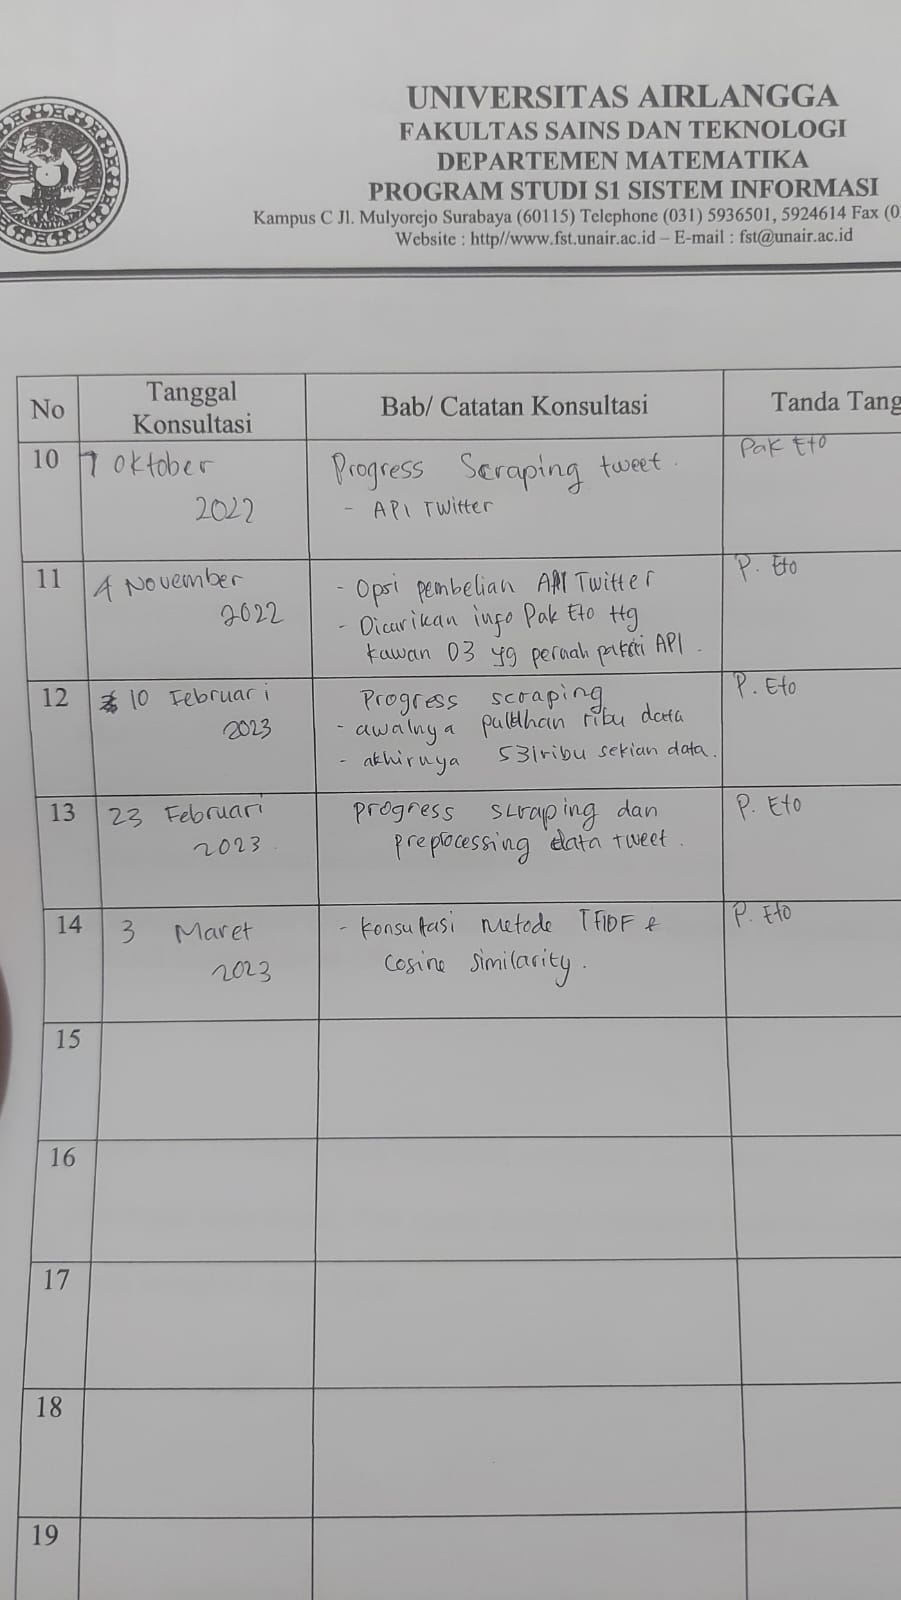 UNIVERSITAS AIRLANGGA
FAKULTAS SAINS DAN TEKNOLOGI
DEPARTEMEN MATEMATIKA
PROGRAM STUDI S1 SISTEM INFORMASI
Kampus C Jl. Mulyorejo Surabaya (60115) Telephone (031) 5936501, 5924614 Fax (0
Website : http//www.fst.unair.ac.id – E-mail : fst@unair.ac.id
No Tanggal Konsultasi Bab/ Catatan Konsultasi Tanda Tang
10 7 Oktober Progress Scraping tweet. Pak Eto
2022 - API Twitter
11 4 November - Opsi pembelian API Twitter P. Eto
2022 - Dicarikan info Pak Eto ttg
kawan D3 yg pernah API.
12 10 Februari Progress scraping P. Eto
2023 - awalnya puluhan ribu data
- akhirnya 531ribu sekian data.
13 23 Februari progress scraping dan P. Eto
2023. preprocessing data tweet.
14 3 Maret - Konsultasi Metode TFIDF & P. Eto
2023 Cosine similarity.
15
16
17
18
19